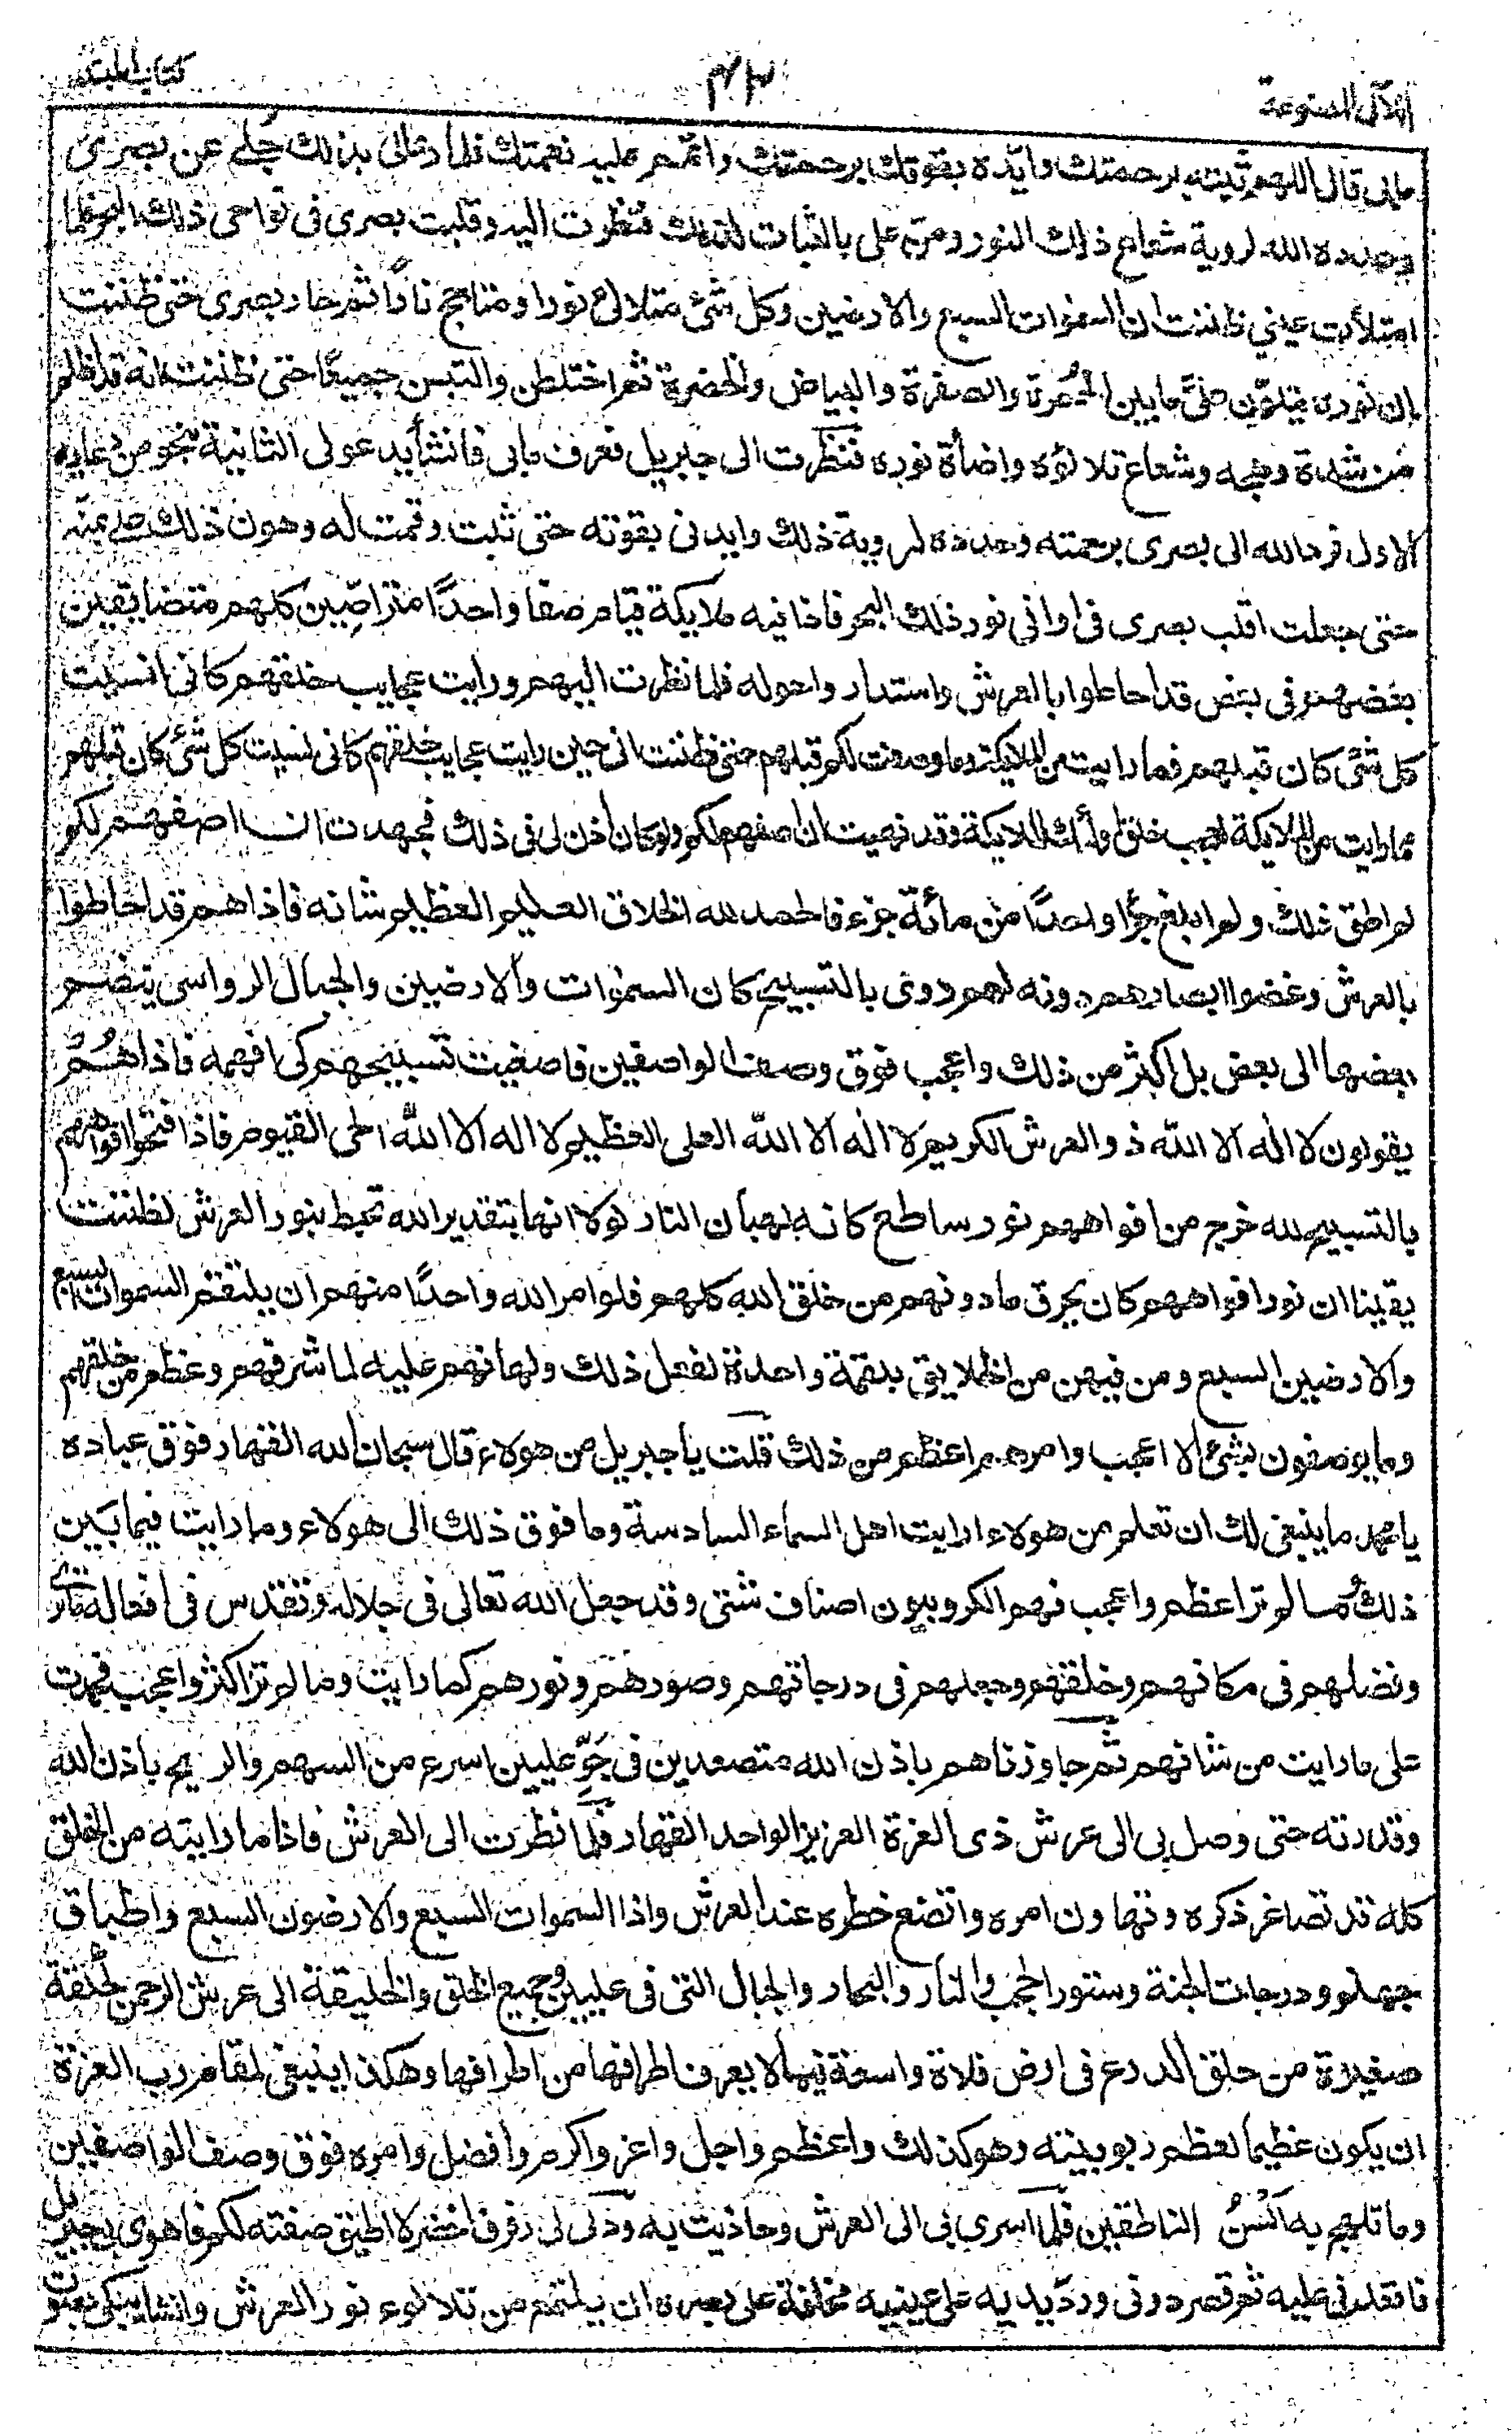 اللآلى المصنوعة
٤٣
كتاب المبتدء
مابى قال اللهم ثبته برحمتك وايّده بقوتك برحمتك واتمم عليه نعمتك فلما دعالى بذلك جُلے عن بصرى
وحدده الله لروية شعاع ذلك النور ومنّ على بالثبات لذلك فنظرت اليه وقلبت بصرى فى نواحى ذلك البحر فلما
امتلأت عيني ظننت ان السموات السبع والارضين وكل شئ متلالئ نورا ومتاجج نارًا ثم حار بصرى حتى ظننت
ان نوره يتلوّن علىَّ مابين الحُمرة والصفرة والبياض والخضرة ثم اختلطن والتبسن جميعًا حتى ظننت انه قد اظلم
من شدة وهجه وشعاع تلالؤه واضأة نوره فنظرت الى جبريل فعرف مابى فانشأ يدعولى الثانية نحو من دعايه
الاول فرد الله الى بصرى برحمته وحدده لروية ذلك وايدنى بقوته حتى ثبت وقمت له وهون ذلك علے بمنّه
حتى جعلت اقلب بصرى فى اواذى نور ذلك البحر فاذا فيه ملايكة قيام صفا واحدًا متراصّين كلهم متضايقين
بعضهم فى بعض قد احاطوا بالعرش واستداروا حوله فلما نظرت اليهم ورايت عجايب خلقهم كانى انسيت
كل شئ كان قبلهم فما رايت من الملايكة وما وصفت لكم قبلهم حتى ظننت انى حين رايت عجايب خلقهم كانى نسيت كل شئ كان قبلهم
مما رايت من الملايكة لعجب خلق اولئك الملايكة وقد نهيت ان اصفهم لكم ولو كان اذن لى فى ذلك فجهدت ان اصفهم لكم
لم اطق ذلك ولم ابلغ جزًا واحدًا من مائة جزء فالحمد لله الخلاق العليم العظيم شانه فاذا هم قد احاطوا
بالعرش وغضوا ابصارهم دونه لهم دوى بالتسبيح كان السموات والارضين والجبال الرواسى ينضم
بعضها الى بعض بل اكثر من ذلك واعجب فوق وصف الواصفين فاصغيت تسبيحهم كى افهمه فاذا هُمْ
يقولون لا اله الا الله ذو العرش الكريم لا اله الا الله العلى العظيم لا اله الا الله الحى القيوم فاذا فتحوا افواههم
بالتسبيح لله خرج من افواههم نور ساطع كانه لهبان النار لولا انها بتقدير الله تحيط بنور العرش لظننت
يقينا ان نور افواههم كان يحرق ما دونهم من خلق الله كلهم فلو امر الله واحدًا منهم ان يلتقم السموات السبع
والارضين السبع ومن فيهن من الخلايق بلقمة واحدة لفعل ذلك ولهانهم عليه لما شرفهم وعظم من خلقهم
وما يوصفون بشئ الا اعجب وامرهم اعظم من ذلك قلت يا جبريل من هولاء قال سبحان الله القهار فوق عباده
يا محمد ما ينبغى لك ان تعلم من هولاء ارايت اهل السماء السادسة وما فوق ذلك الى هولاء وما رايت فيما بَين
ذلك وُما لم تر اعظم واعجب فهم الكروبيون اصناف شتى وقد جعل الله تعالى فى جلاله وتقدس فى افعاله ما ترى
وفضلهم فى مكانهم وخلقهم وجعلهم فى درجاتهم وصورهم ونورهم كما رايت وما لم تر اكثر واعجب فحمدت
على ما رايت من شانهم ثم جاوزناهم باذن الله متصعدين فى جَوِّ عليين اسرع من السهم والريح باذن الله
وقدرته حتى وصل بى الى عرش ذى العزة العزيز الواحد القهار فلما نظرت الى العرش فاذا ما رايته من الخلق
كله قد تصاغر ذكره وتهاون امره واتضع خطره عند العرش واذا السموات السبع والارضون السبع واطباق
جهنم ودرجات الجنة وستور الحجب والنار والبحار والجبال التى فى عليين وجميع الخلق والخليقة الى عرش الرحمن كحلقة
صغيرة من حلق الدرع فى ارض فلاة واسعة تيهالا يعرف اطرافها من اطرافها وهكذا ينبغى لمقام رب العزة
ان يكون عظيما لعظم ربوبيته وهو كذلك واعظم واجل واعز واكرم وافضل وامره فوق وصف الواصفين
وما تلهج به اَلْسُنُ الناطقين فلما اسرى بى الى العرش وحاذيت به ودلى لى رفرف اخضر لا اطيق صفته لكم فاهوى بى جبريل
فاقعدنى عليه ثم قصر دونى وردّ يديه على عينيه مخافة على بصره ان يلتمع من تلالوء نور العرش وانشا يبكى بصوت